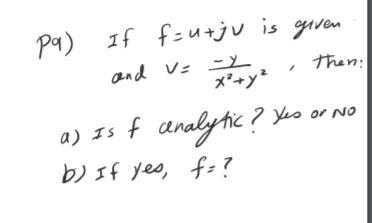 P9) If f=u+jv is given
and v= -y/(x²+y²) , then:
a) Is f analytic? Yes or No
b) If yes, f=?